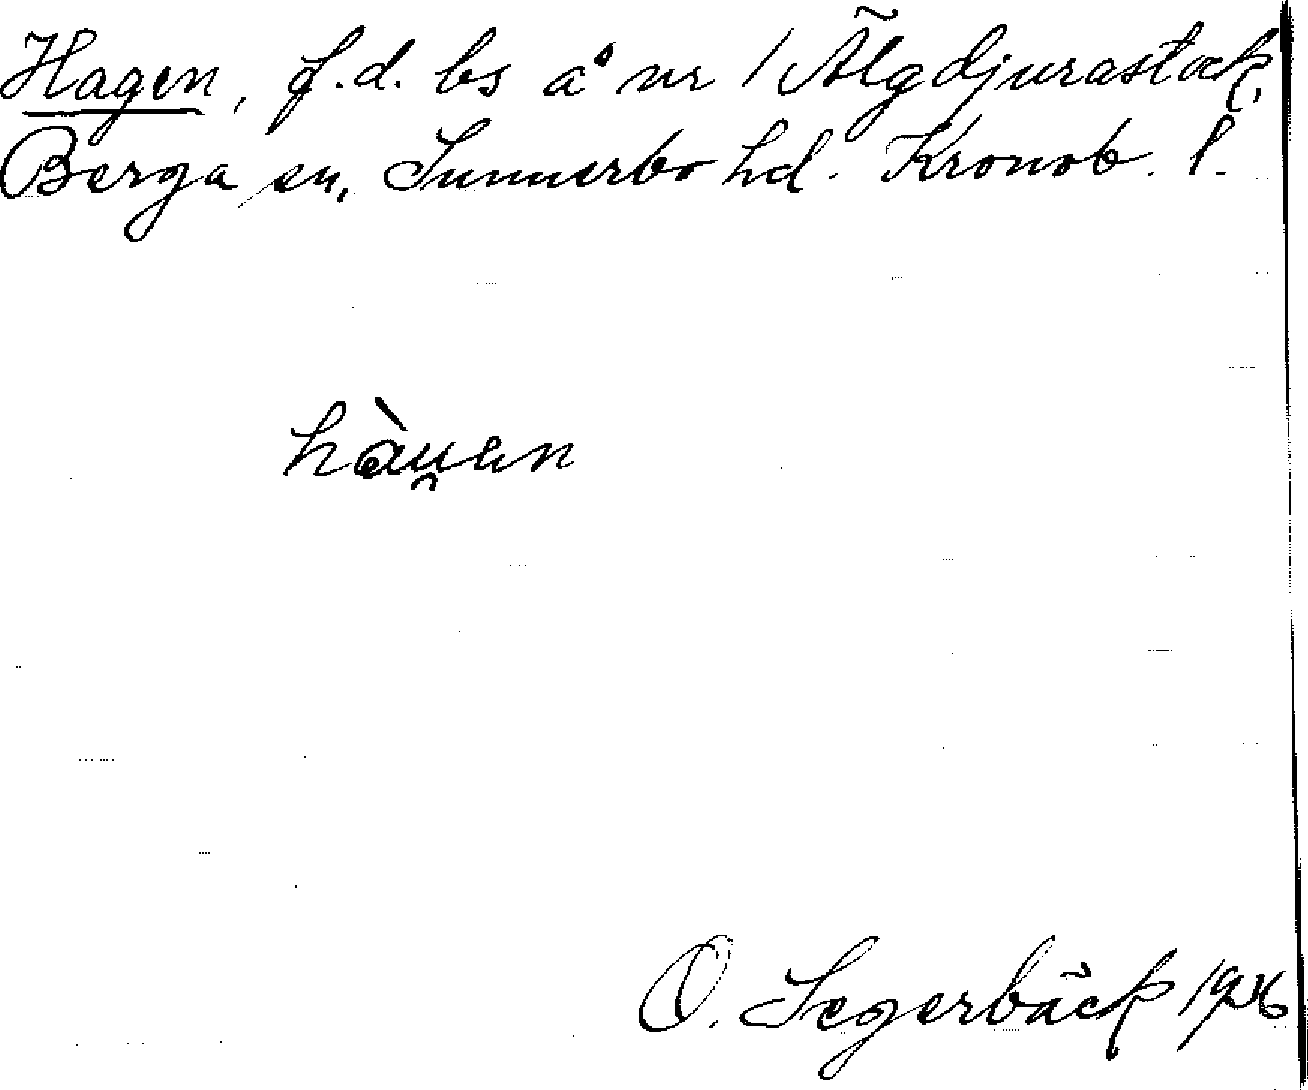 Hagen, f.d. bs å nr 1 Älgdjurastock,
Berga sn, Sunnerbo hd. Kronob. l.
hàu̯an
O. Segerbäck 1926